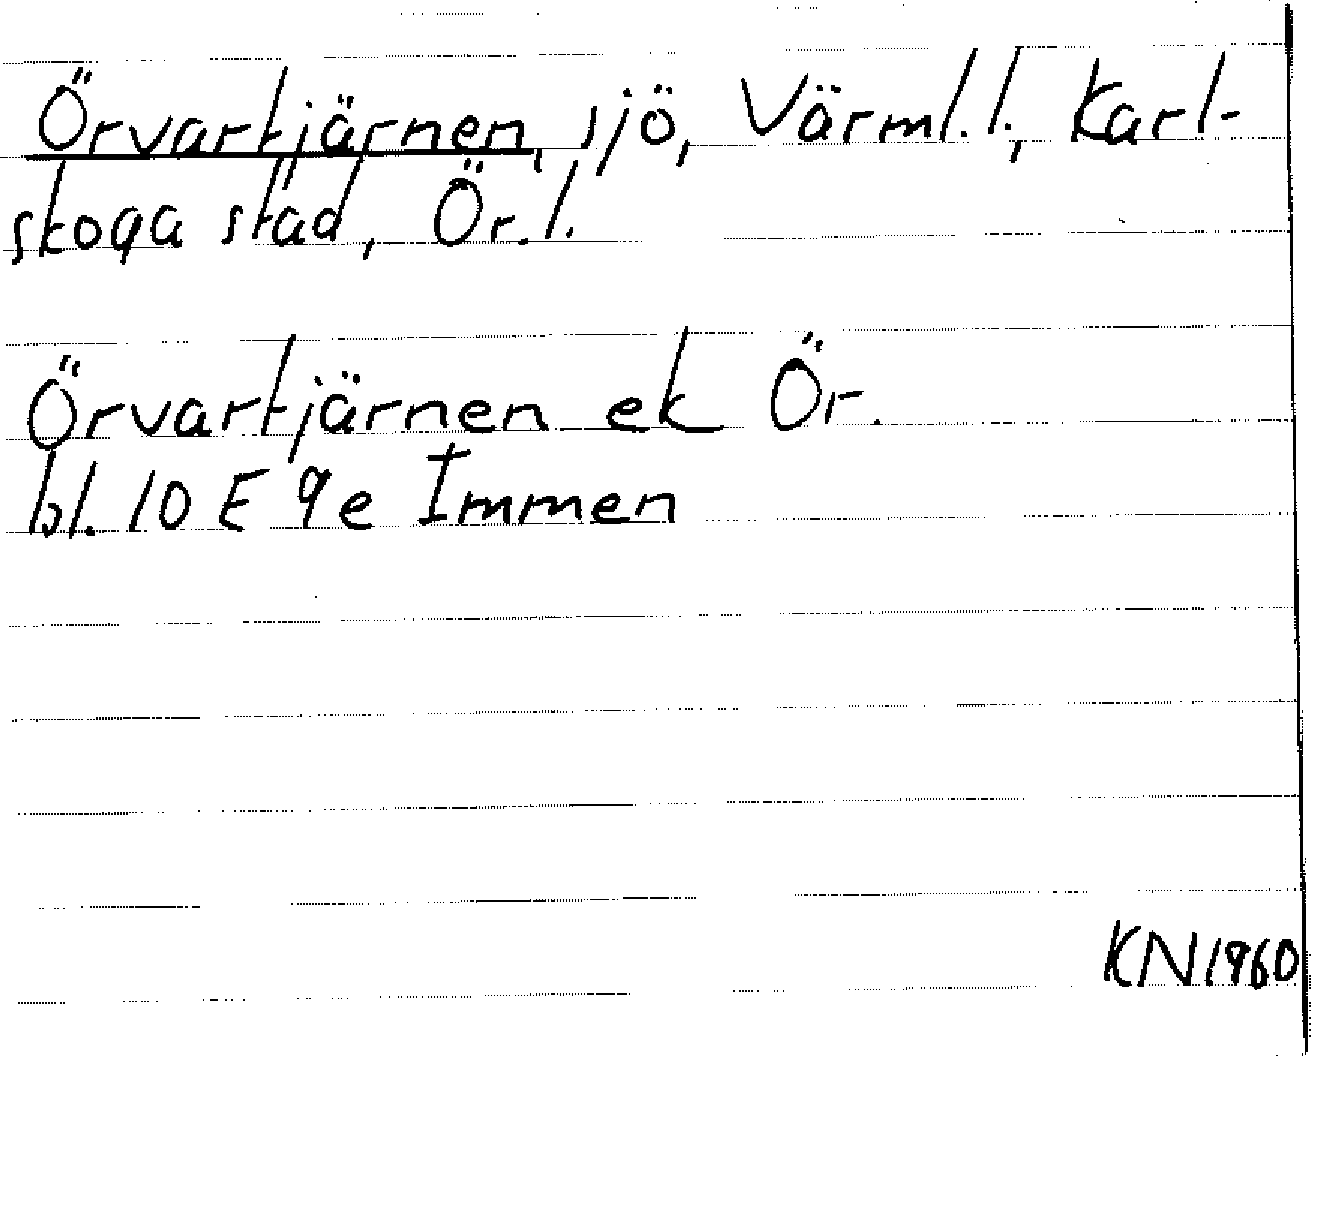 Örvartjärnen, sjö, Värml. l., Karl-
skoga stad, Ör. l.
Örvartjärnen ek Ör.
bl. 10 E 9e Immen
KN 1960